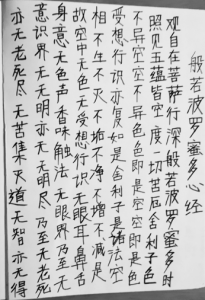 般若波罗蜜多心经
观自在菩萨行深般若波罗蜜多时
照见五蕴皆空度一切苦厄舍利子色
不异空空不异色色即是空空即是色
受想行识亦复如是舍利子是诸法空
相不生不灭不垢不净不增不减是
故空中无色无受想行识无眼耳鼻舌
身意无色声香味触法无眼界乃至无
意识界无无明亦无无明尽乃至无老死
亦无老死尽无苦集灭道无智亦无得